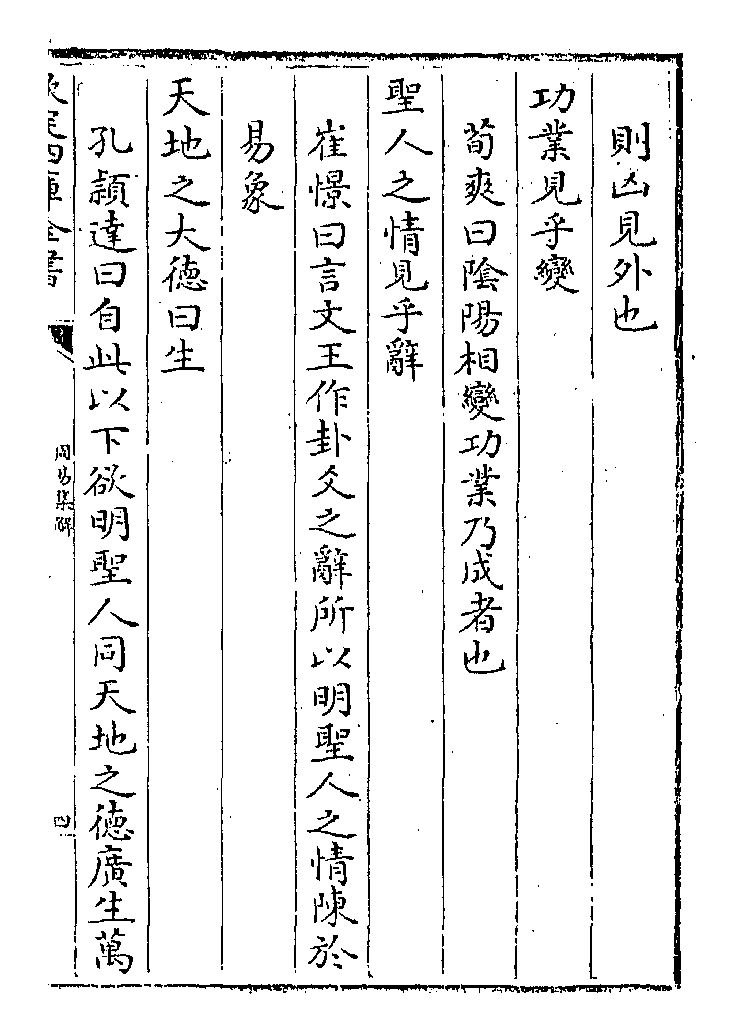 則凶見外也
功業見乎變
荀爽曰陰陽相變功業乃成者也
聖人之情見乎辭
崔憬曰言文王作卦爻之辭所以明聖人之情陳於
易象
天地之大徳曰生
孔頴達曰自此以下欲明聖人同天地之徳廣生萬
欽定四庫全書
周易集解
四